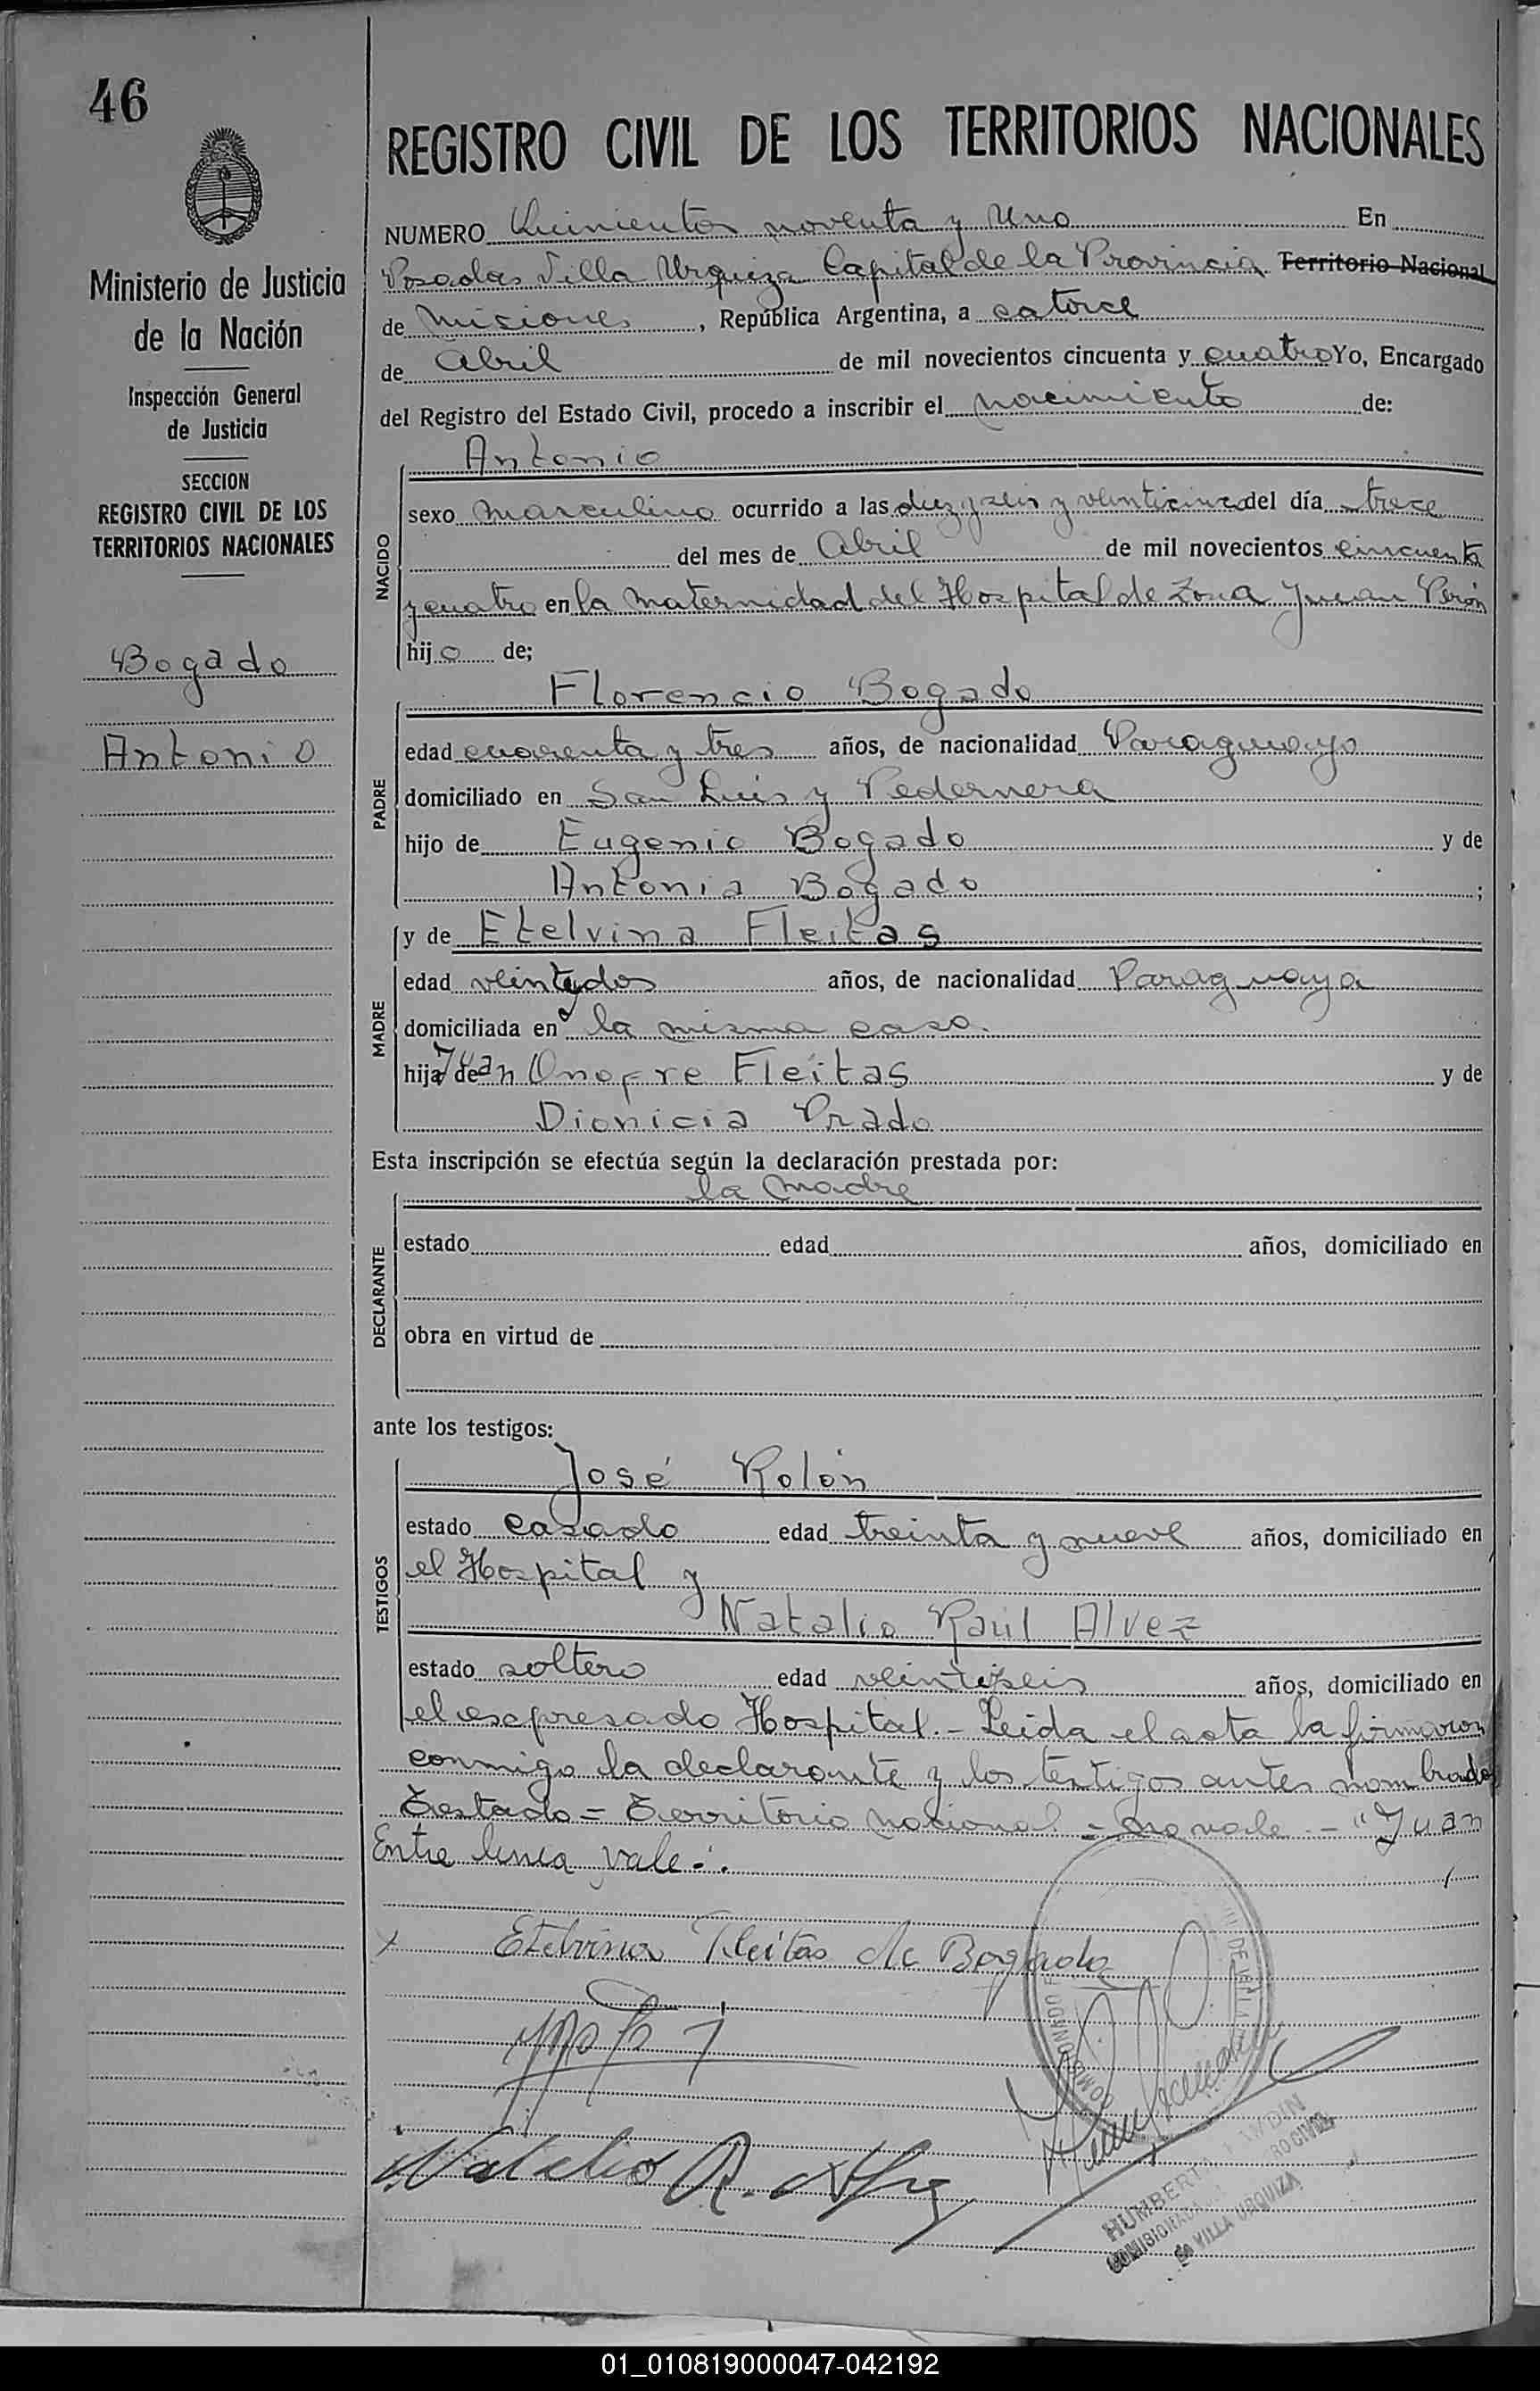 46
REGISTRO CIVIL DE LOS TERRITORIOS NACIONALES
Ministerio de Justicia
de la Nación
Inspección General
de Justicia
SECCION
REGISTRO CIVIL DE LOS
TERRITORIOS NACIONALES
Bogado
Antonio
NUMERO Quinientos noventa y Uno En
Posadas Villa Urquiza Capital de la Provincia Territorio Nacional
de Misiones, República Argentina, a catorce
de Abril de mil novecientos cincuenta y cuatro Yo, Encargado
del Registro del Estado Civil, procedo a inscribir el nacimiento de:
NACIDO
Antonio
sexo masculino ocurrido a las diez y seis y veinticinco del día trece
del mes de Abril de mil novecientos cincuenta
y cuatro en la Maternidad del Hospital de Zona Juan Perón
hijo de;
PADRE
Florencio Bogado
edad cuarenta y tres años, de nacionalidad Paraguayo
domiciliado en San Luis y Pedernera
hijo de Eugenio Bogado y de
Antonia Bogado ;
MADRE
y de Etelvina Fleitas
edad veintydos años, de nacionalidad Paraguaya
domiciliada en la misma casa.
hija de Juan Onofre Fleitas y de
Dionicia Prado
Esta inscripción se efectúa según la declaración prestada por:
DECLARANTE
la Madre
estado edad años, domiciliado en
obra en virtud de
ante los testigos:
TESTIGOS
José Rolón
estado casado edad treinta y nueve años, domiciliado en
el Hospital y
Natalio Raúl Alvez
estado soltero edad veintiseis años, domiciliado en
el expresado Hospital.- Leida el acta la firmaron
conmigo la declarante y los testigos antes nombrados
Testado = Territorio nacional - no vale - "Juan
Entre linea vale -.
x Etelvina Fleitas de Bogado
Natalio R. Alvez
HUMBERTO
RO CIVIL
COMISIONADO
DE VILLA URQUIZA
01_010819000047-042192